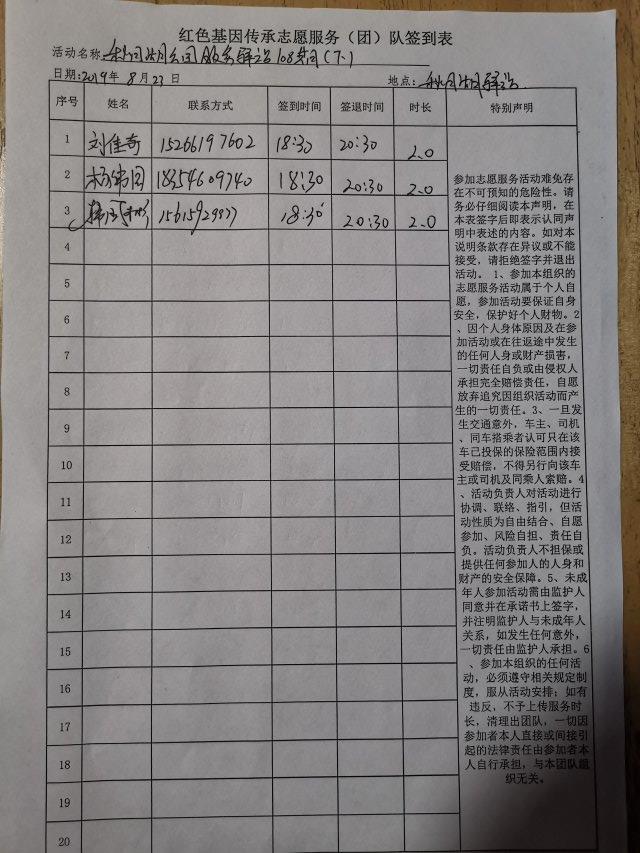 红色基因传承志愿服务（团）队签到表
活动名称: 公园服务 108期(下)
日期:2019年8月23日 地点:
序号 姓名 联系方式 签到时间 签退时间 时长 特别声明
1 刘佳奇 15266197602 18:30 20:30 2.0
2 18354609740 18:30 20:30 2.0
3 18:30 20:30 2.0
4
5
6
7
8
9
10
11
12
13
14
15
16
17
18
19
20
参加志愿服务活动难免存
在不可预知的危险性。请
务必仔细阅读本声明，在
本表签字后即表示认同声
明中表述的内容。如对本
说明条款存在异议或不能
接受，请拒绝签字并退出
活动。 1、参加本组织的
志愿服务活动属于个人自
愿，参加活动要保证自身
安全，保护好个人财物。2
、因个人身体原因及在参
加活动或在往返途中发生
的任何人身或财产损害，
一切责任自负或由侵权人
承担完全赔偿责任，自愿
放弃追究因组织活动而产
生的一切责任。3、一旦发
生交通意外，车主、司机
、同车搭乘者认可只在该
车已投保的保险范围内接
受赔偿，不得另行向该车
主或司机及同乘人索赔。4
、活动负责人对活动进行
协调、联络、指引，但活
动性质为自由结合、自愿
参加、风险自担、责任自
负。活动负责人不担保或
提供任何参加人的人身和
财产的安全保障。5、未成
年人参加活动需由监护人
同意并在承诺书上签字，
并注明监护人与未成年人
关系，如发生任何意外，
一切责任由监护人承担。6
、参加本组织的任何活
动，必须遵守相关规定制
度，服从活动安排；如有
违反，不予上传服务时
长，清理出团队，一切因
参加者本人直接或间接引
起的法律责任由参加者本
人自行承担，与本团队组
织无关。